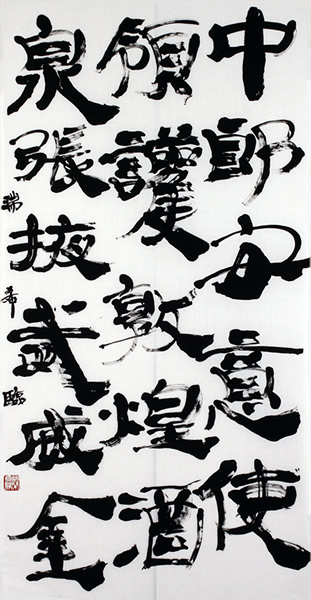 中郎安意使
領護敦煌酒
泉張掖武威金
瑞希臨